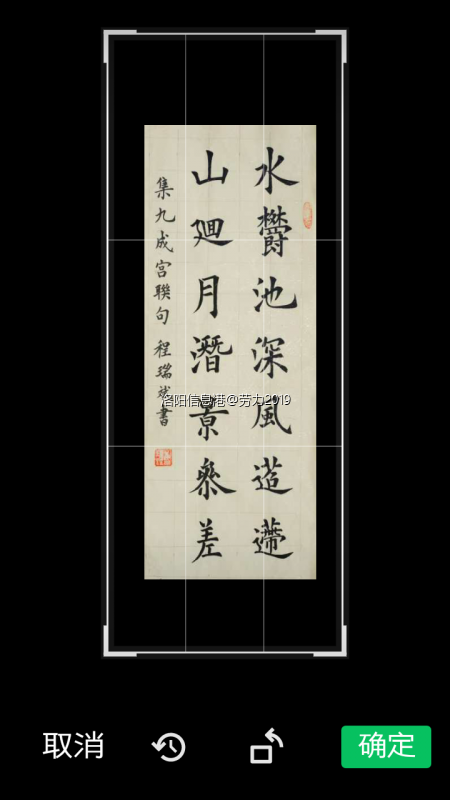 水欝池深風迢遰
山廻月潛景叅差
集九成宮聯句 程瑞斌書
洛阳信息港@劳力2019
取消
确定